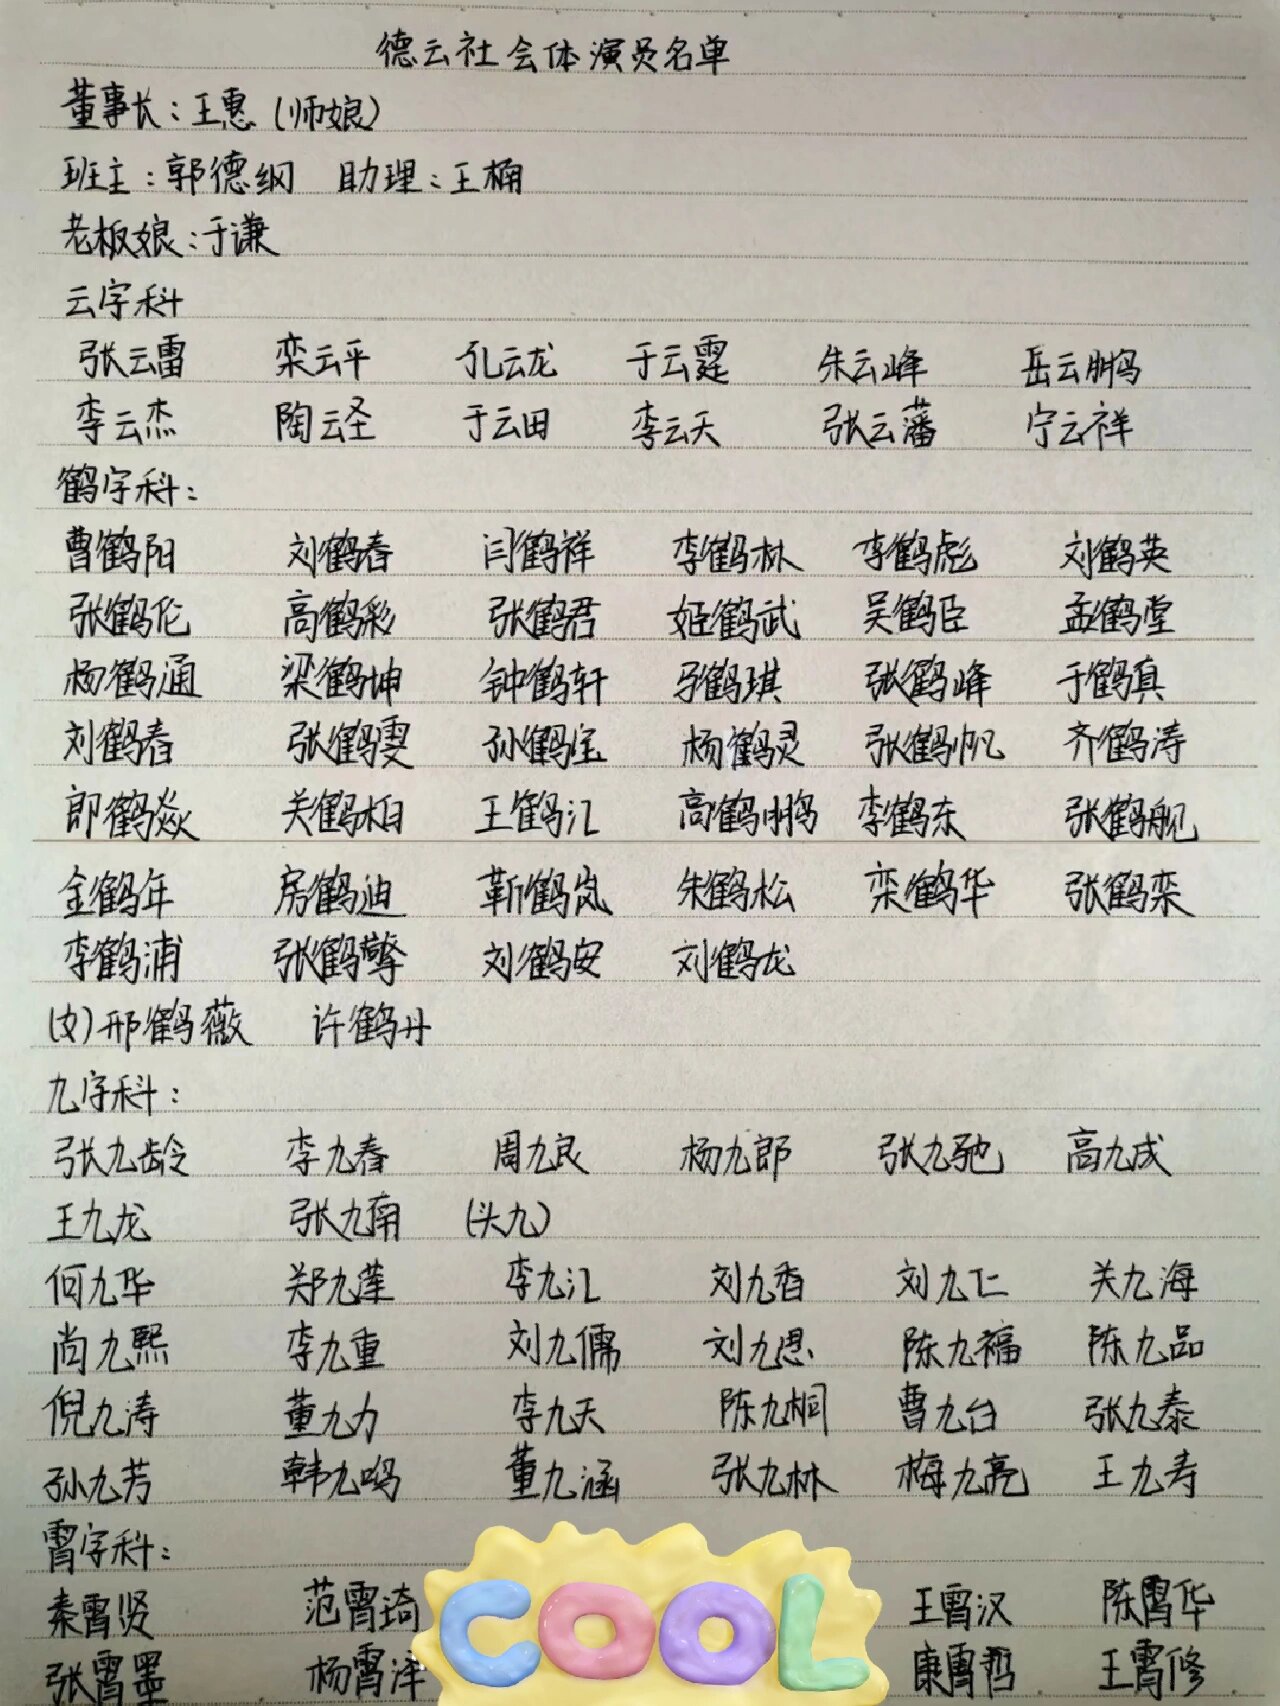 德云社会体演员名单
董事长：王惠（师娘）
班主：郭德纲 助理：王楠
老板娘：于谦
云字科
张云雷 栾云平 孔云龙 于云霆 朱云峰 岳云鹏
李云杰 陶云圣 于云田 李云天 张云藩 宁云祥
鹤字科：
曹鹤阳 刘鹤春 闫鹤祥 李鹤林 李鹤彪 刘鹤英
张鹤伦 高鹤彩 张鹤君 姬鹤武 吴鹤臣 孟鹤堂
杨鹤通 梁鹤坤 钟鹤轩 鹤琪 张鹤峰 于鹤真
刘鹤春 张鹤雯 孙鹤宝 杨鹤灵 张鹤帆 齐鹤涛
郎鹤焱 关鹤柏 王鹤江 高鹤鹏 李鹤东 张鹤舰
金鹤年 房鹤迪 靳鹤岚 朱鹤松 栾鹤华 张鹤栾
李鹤浦 张鹤擎 刘鹤安 刘鹤龙
（女）邢鹤薇 许鹤丹
九字科：
张九龄 李九春 周九良 杨九郎 张九驰 高九成
王九龙 张九南 （头九）
何九华 郑九莲 李九江 刘九香 刘九仁 关九海
尚九熙 李九重 刘九儒 刘九思 陈九福 陈九品
倪九涛 董九力 李九天 陈九桐 曹九台 张九泰
孙九芳 韩九鸣 董九涵 张九林 梅九亮 王九寿
霄字科：
秦霄贤 范霄琦 王霄汉 陈霄华
张霄墨 杨霄泽 康霄哲 王霄修
COOL